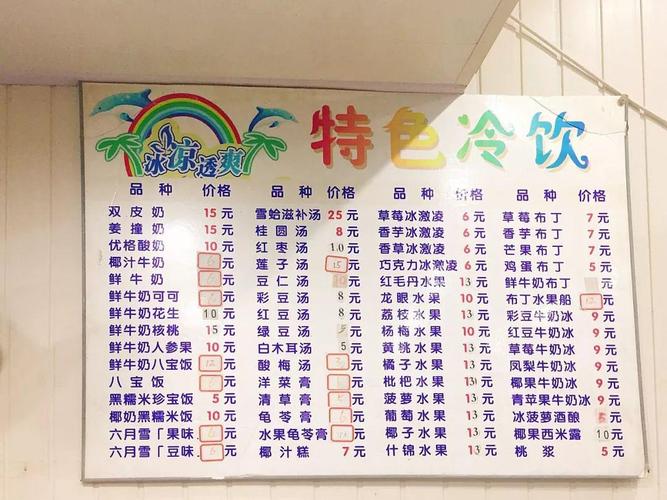 冰凉透爽
特色冷饮
品种 价格
双皮奶 15元
姜撞奶 15元
优格酸奶 10元
椰汁牛奶 6元
鲜牛奶 元
鲜牛奶可可 元
鲜牛奶花生 10元
鲜牛奶核桃 15元
鲜牛奶人参果 10元
鲜牛奶八宝饭 12元
八宝饭 元
黑糯米珍宝饭 5元
椰奶黑糯米饭 10元
六月雪「果味 6元
六月雪「豆味 6元
品种 价格
雪蛤滋补汤 25元
桂圆汤 8元
红枣汤 10元
莲子汤 15元
豆仁汤 10元
彩豆汤 8元
红豆汤 8元
绿豆汤 5元
白木耳汤 5元
酸梅汤 元
洋菜膏 6元
清草膏 元
龟苓膏 6元
水果龟苓膏 元
椰汁糕 7元
品种 价格
草莓冰激凌 6元
香芋冰激凌 6元
香草冰激凌 6元
巧克力冰激凌 6元
红毛丹水果 13元
龙眼水果 10元
荔枝水果 13元
杨梅水果 10元
黄桃水果 13元
橘子水果 13元
枇杷水果 13元
菠萝水果 13元
葡萄水果 13元
椰子水果 13元
什锦水果 13元
品种 价格
草莓布丁 7元
香芋布丁 7元
芒果布丁 7元
鸡蛋布丁 5元
鲜牛奶布丁 元
布丁水果船 12元
彩豆牛奶冰 9元
红豆牛奶冰 9元
草莓牛奶冰 9元
凤梨牛奶冰 9元
椰果牛奶冰 9元
青苹果牛奶冰 9元
冰菠萝酒酿 元
椰果西米露 10元
桃浆 5元